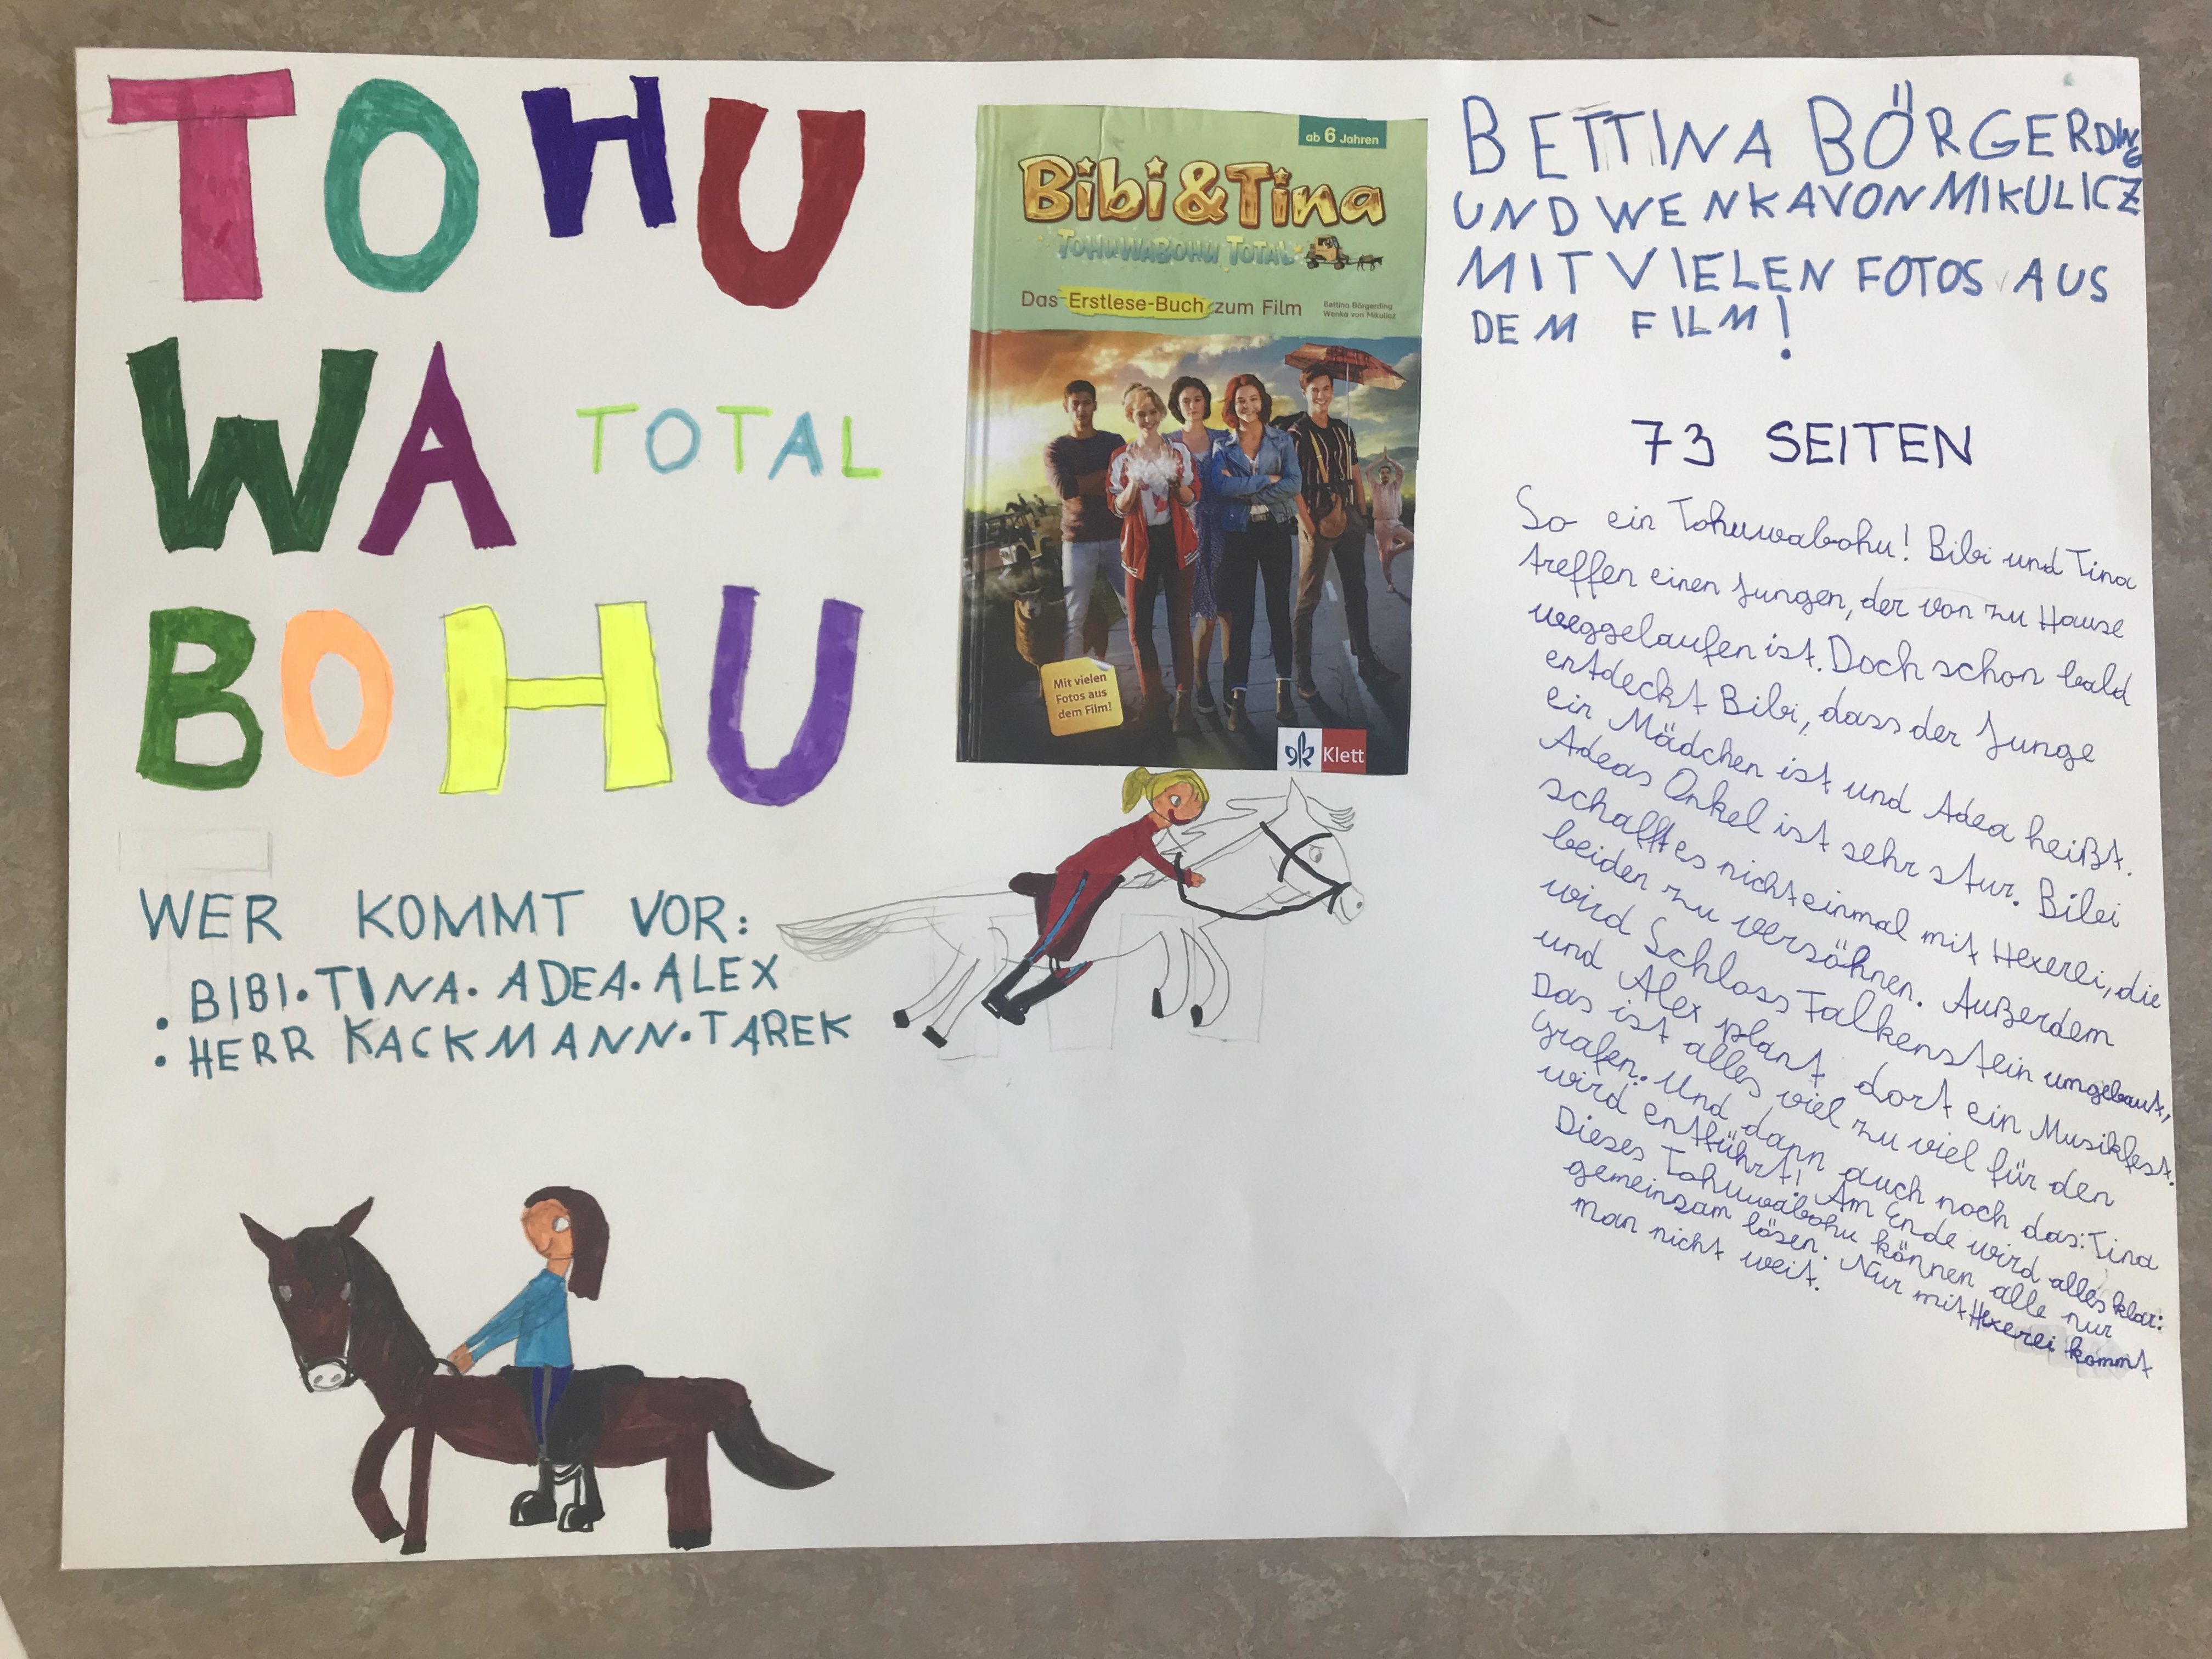 TOHU
WA TOTAL
BOHU
WER KOMMT VOR:
• BIBI • TINA • ADEA • ALEX
• HERR KACKMANN • TAREK
ab 6 Jahren
Bibi & Tina
TOHUWABOHU TOTAL
Das Erstlese-Buch zum Film
Bettina Börgerding
Wenka von Mikulicz
Mit vielen
Fotos aus
dem Film!
Klett
BETTINA BÖRGERDING
UND WENKA VON MIKULICZ
MIT VIELEN FOTOS AUS
DEM FILM!
73 SEITEN
So ein Tohuwabohu! Bibi und Tina
treffen einen Jungen, der von zu Hause
weggelaufen ist. Doch schon bald
entdeckt Bibi, dass der Junge
ein Mädchen ist und Adea heißt.
Adeas Onkel ist sehr stur. Bibi
schafft es nicht einmal mit Hexerei, die
beiden zu versöhnen. Außerdem
wird Schloss Falkenstein umgebaut,
und Alex plant dort ein Musikfest.
Das ist alles viel zu viel für den
Grafen. Und dann auch noch das: Tina
wird entführt! Am Ende wird alles klar:
Dieses Tohuwabohu können alle nur
gemeinsam lösen. Nur mit Hexerei kommt
man nicht weit.